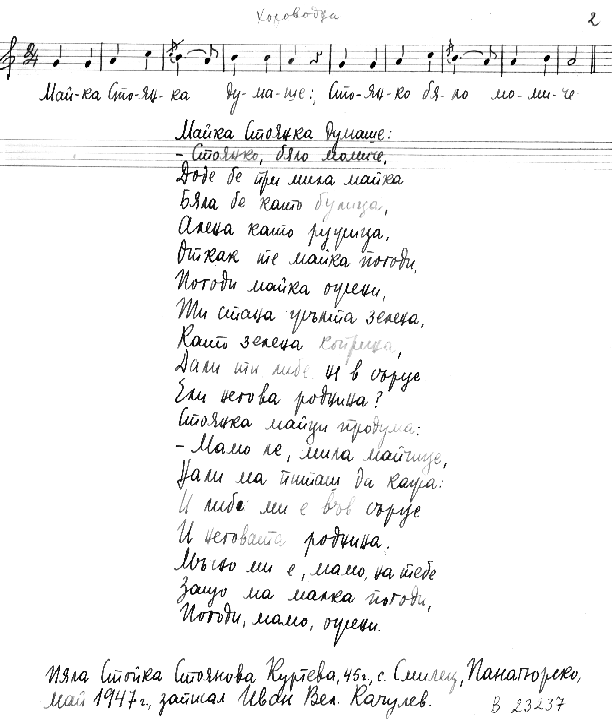 Хороводна
2
2/4
Май-ка Сто-ян-ка ду-ма-ше: Сто-ян-ко бя-ло мо-ми-че
Майка Стоянка думаше:
- Стоянко, бяло момиче,
Доде бе при мила майка
Бяла бе като булица,
Алена като ружица,
Откак те майка погоди,
Погоди майка ожени,
Ти стана жълта зелена,
Като зелена коприна,
Дали ти либе не в сърце
Ели негова роднина?
Стоянка майци продума:
- Мамо ле, мила майчице,
Нали ма питаш да кажа:
И либе ми е във сърце
И неговата роднина.
Мъчно ми е, мамо, на тебе
Защо ма малка погоди,
Погоди, мамо, ожени.
Пяла Стойка Стоянова Куртева, 45 г., с. Смилец, Панагюрско,
май 1947 г., записал Иван Вел. Качулев.
В 23237